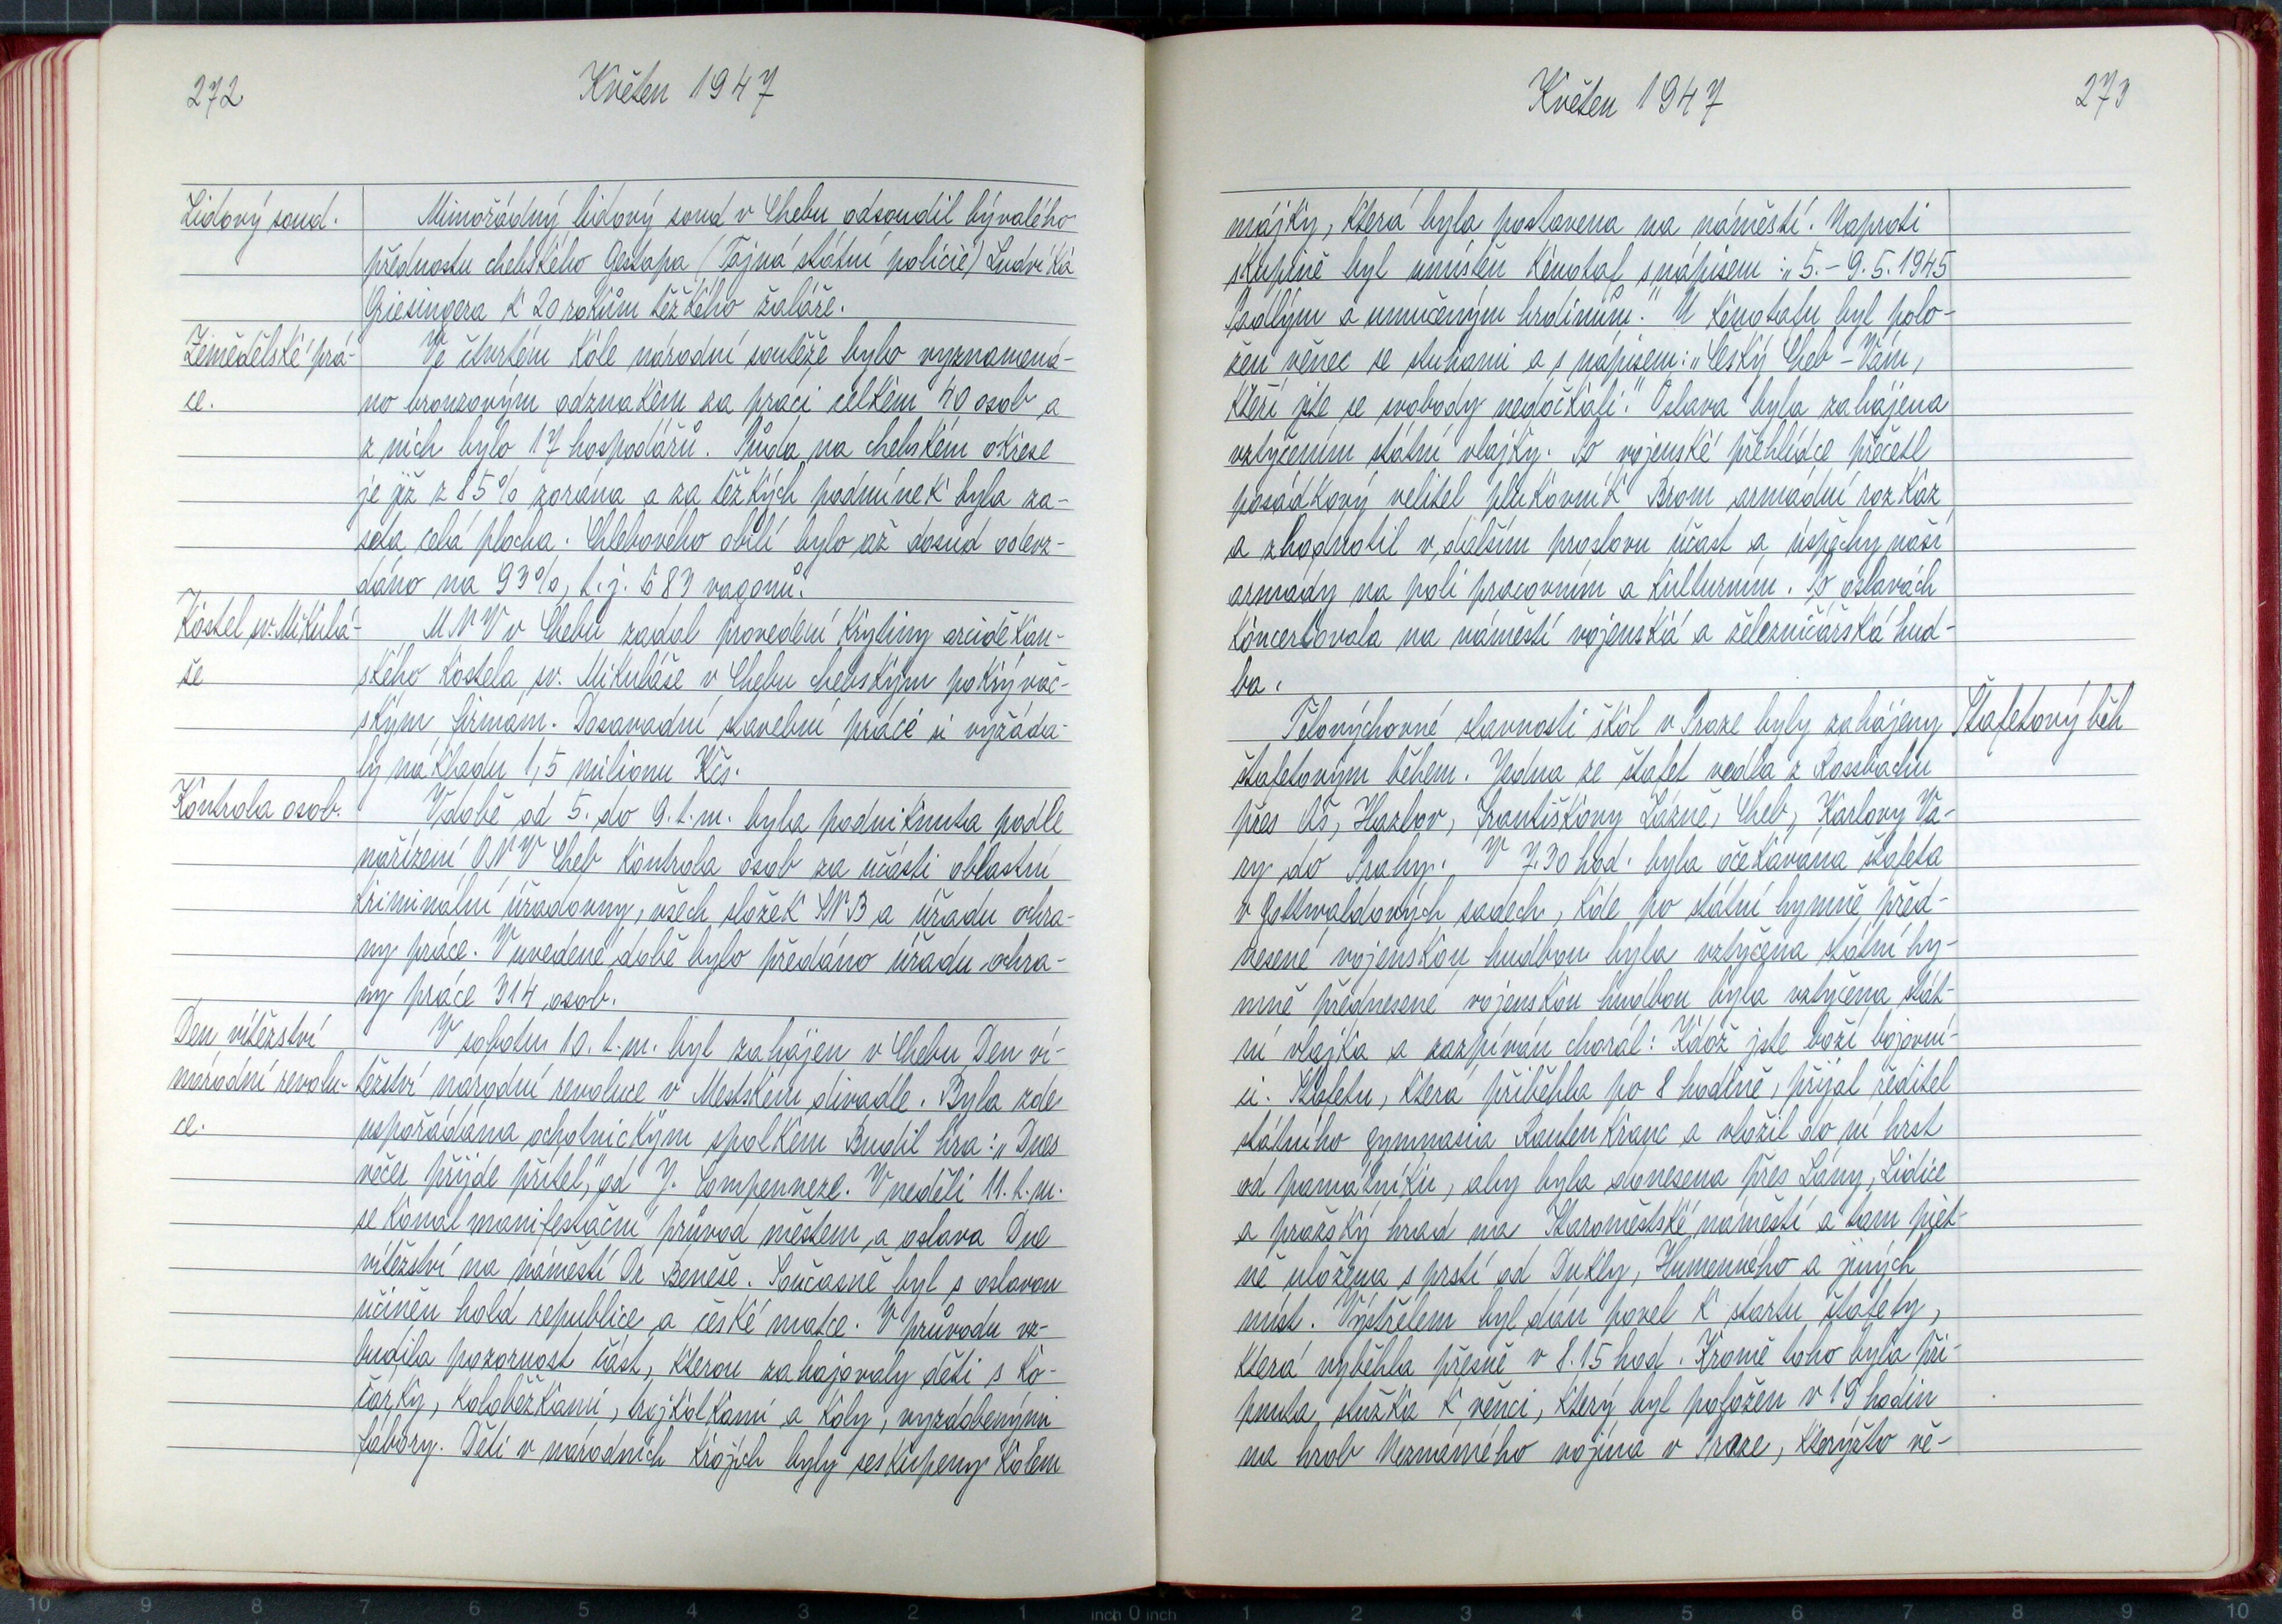 272
Květen 1947
Lidový soud.
Mimořádný lidový soud v Chebu odsoudil bývalého
přednostu chebského Gestapa (Tajná státní policie) Ludvíka
Griesingera k 20 rokům těžkého žaláře.
Zemědělské prá-
ce.
Ve čtvrtém kole národní soutěže bylo vyznamená-
no bronzovým odznakem za práci celkem 40 osob a
z nich bylo 17 hospodářů. Půda na chebském okrese
je již z 85% zorána a za těžkých podmínek byla za-
seta celá plocha. Chlebového obilí bylo až dosud odevz-
dáno na 93%, t.j. 683 vagonů.
Kostel sv. Mikulá-
še
M N V v Chebu zadal provedení krytiny arciděkan-
ského kostela sv. Mikuláše v Chebu chebským pokrývač-
ským firmám. Dosavadní stavební práce si vyžáda-
ly nákladu 1,5 milionu Kčs.
Kontrola osob.
V době od 5. do 9. t. m. byla podniknuta podle
nařízení O N V Cheb kontrola osob za účasti oblastní
kriminální úřadovny, všech složek SNB a úřadu ochra-
ny práce. V uvedené době bylo předáno úřadu ochra-
ny práce 314 osob.
Den vítězství
národní revolu-
ce.
V sobotu 10. t. m. byl zahájen v Chebu Den ví-
tězství národní revoluce v Městském divadle. Byla zde
uspořádána ochotnickým spolkem Budil hra: „Dnes
večer přijde přítel," od J. Companneze. V neděli 11. t. m.
se konal manifestační průvod městem a oslava Dne
vítězství na náměstí Dr Beneše. Současně byl s oslavou
učiněn hold republice a české matce. V průvodu vz-
budila pozornost část, kterou zahajovaly děti s ko-
čárky, koloběžkami, trojkolkami a koly, vyzdobenými
fábory. Děti v národních krojích byly seskupeny kolem
Květen 1947
273
májky, která byla postavena na náměstí. Naproti
skupině byl umístěn kenotaf s nápisem: „5.-9.5.1945
Padlým a umučeným hrdinům." U kenotafu byl polo-
žen věnec se stuhami a s nápisem: „Český Cheb - Vám,
kteří jste se svobody nedočkali." Oslava byla zahájena
vztyčením státní vlajky. Po vojenské přehlídce přečetl
posádkový velitel plukovník Brom armádní rozkaz
a zhodnotil v dalším proslovu účast a úspěchy naší
armády na poli pracovním a kulturním. Po oslavách
koncertovala na náměstí vojenská a železničářská hud-
ba.
Štafetový běh
Tělovýchovné slavnosti škol v Praze byly zahájeny
štafetovým během. Jedna ze štafet vedla z Rossbachu
přes Aš, Hazlov, Františkovy Lázně, Cheb, Karlovy Va-
ry do Prahy. V 7.30 hod. byla očekávána štafeta
v Gottwaldových sadech, kde po státní hymně před-
nesené vojenskou hudbou byla vztyčena státní hy-
mně přednesené vojenskou hudbou byla vztyčena stát-
ní vlajka a zazpíván chorál: Ktož jste boží bojovní-
ci. Štafetu, která přiběhla po 8 hodině, přijal ředitel
státního gymnasia Rautenkranc a vložil do ní hrst
od památníku, aby byla donesena přes Lány, Lidice
a pražský hrad na Staroměstské náměstí a tam piet-
ně uložena s prstí od Dukly, Humenného a jiných
míst. Výstřelem byl dán povel k startu štafety,
která vyběhla přesně v 8.15 hod. Kromě toho byla při-
pnuta stužka k věnci, který byl položen v 19 hodin
na hrob Neznámého vojína v Praze, kterýžto vě-